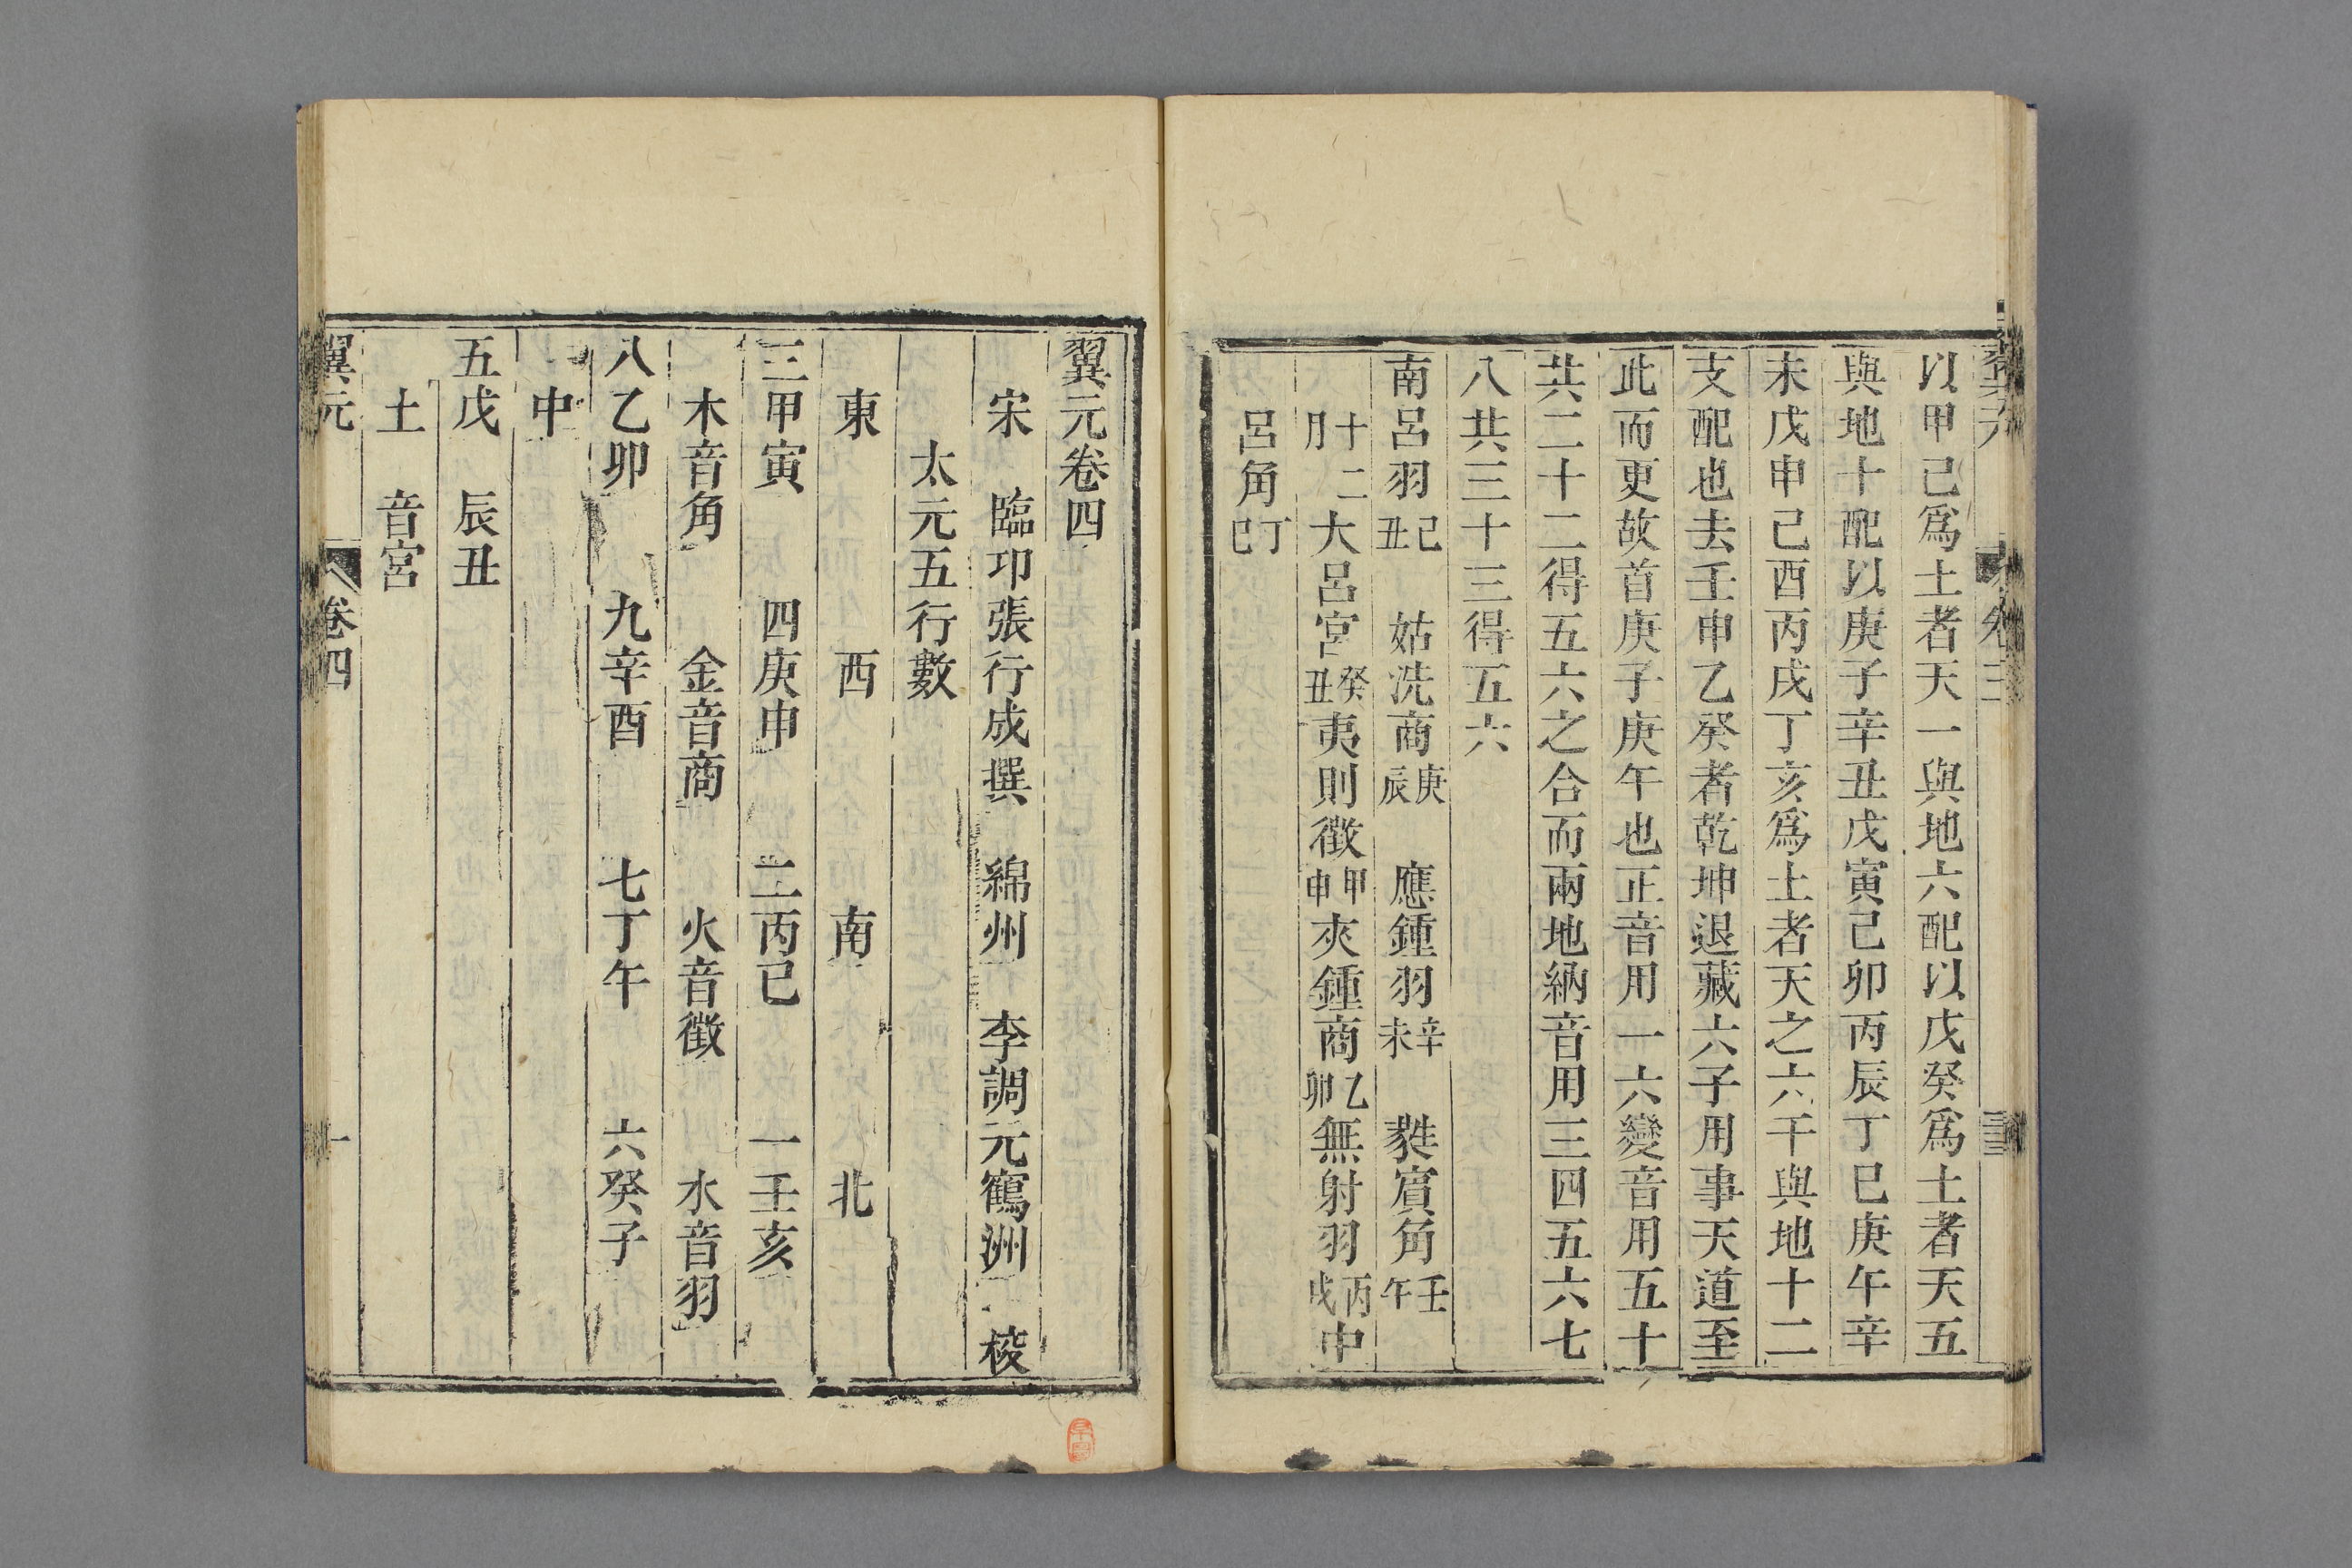 以甲己爲土者天一與地六配以戊癸爲土者天五
與地十配以庚子辛丑戊寅己卯丙辰丁巳庚午辛
未戊申己酉丙戌丁亥爲土者天之六干與地十二
支配也去壬申乙癸者乾坤退藏六子用事天道至
此而更故首庚子庚午也正音用一六變音用五十
共二十二得五六之合而兩地納音用三四五六七
八共三十三得五六
南呂羽己丑 姑洗商庚辰 應鍾羽辛未 蕤賓角壬午
十二月大呂宮癸丑夷則徵甲申夾鍾商乙卯無射羽丙戌中
呂角丁巳
翼元卷四
宋 臨邛張行成撰 綿州 李調元鶴洲 校
太元五行數
東 西 南 北
三甲寅 四庚申 二丙巳 一壬亥
木音角 金音商 火音徵 水音羽
八乙卯 九辛酉 七丁午 六癸子
中
五戊 辰丑
土 音宮
翼元 卷四 一